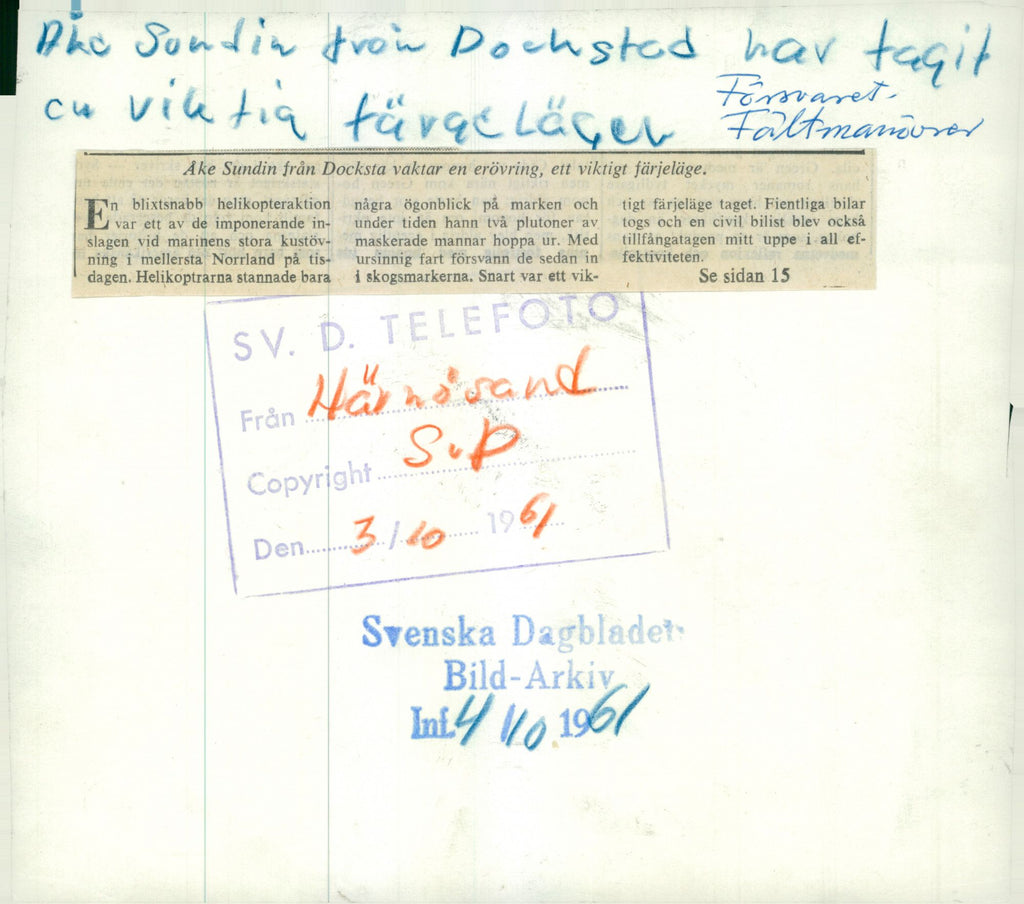 Åke Sundin från Dochstad har tagit
en viktig färgeläger
Försvaret-
Fältmanövrer
Åke Sundin från Docksta vaktar en erövring, ett viktigt färjeläge.
En blixtsnabb helikopteraktion
var ett av de imponerande in-
slagen vid marinens stora kustöv-
ning i mellersta Norrland på tis-
dagen. Helikoptrarna stannade bara
några ögonblick på marken och
under tiden hann två plutoner av
maskerade mannar hoppa ur. Med
ursinnig fart försvann de sedan in
i skogsmarkerna. Snart var ett vik-
tigt färjeläge taget. Fientliga bilar
togs och en civil bilist blev också
tillfångatagen mitt uppe i all ef-
fektiviteten.
Se sidan 15
SV. D. TELEFOTO
Från Härnösand
Copyright SvD
Den 3/10 1961
Svenska Dagbladet
Bild-Arkiv
Inf. 4/10 1961